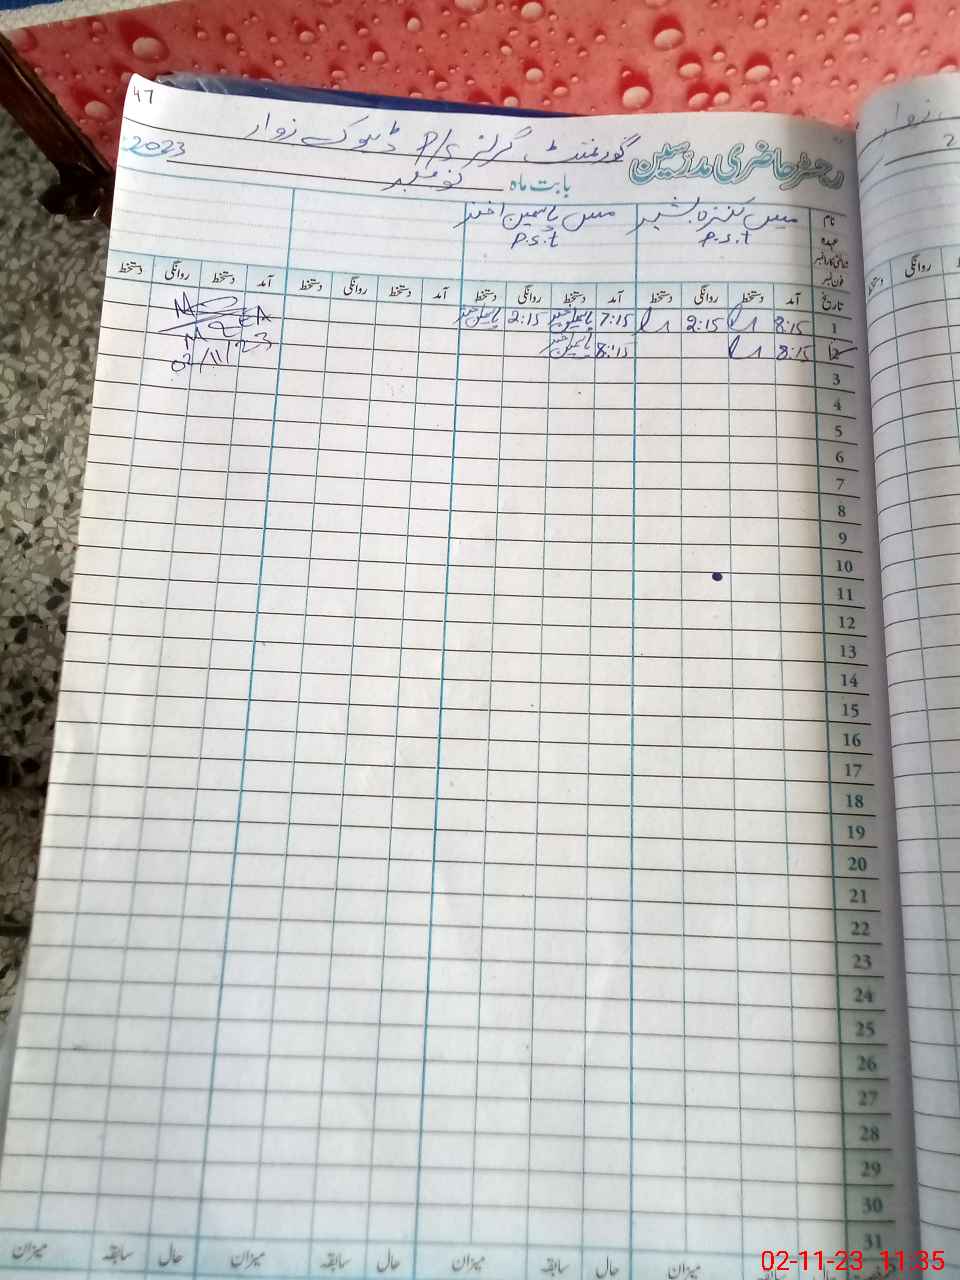 47
رجسٹر حاضری مدرسین گورنمنٹ گرلز P/S ڈہوک زوار
بابت ماہ نومبر 2023
نام مس کنزہ بشیر مس یاسمین اختر
عہدہ P.S.T P.S.T
فون نمبر
تاریخ آمد دستخط روانگی دستخط آمد دستخط روانگی دستخط آمد دستخط روانگی دستخط آمد دستخط روانگی دستخط
1 8:15 2:15 7:15 یاسمین اختر 2:15 یاسمین اختر
2 8:15 8:15 یاسمین اختر
MEA
02/11/23
3
4
5
6
7
8
9
10
11
12
13
14
15
16
17
18
19
20
21
22
23
24
25
26
27
28
29
30
31
میزان حال سابقہ میزان حال سابقہ میزان حال سابقہ میزان
زوار
2
روانگی
دستخط
02-11-23 11:35